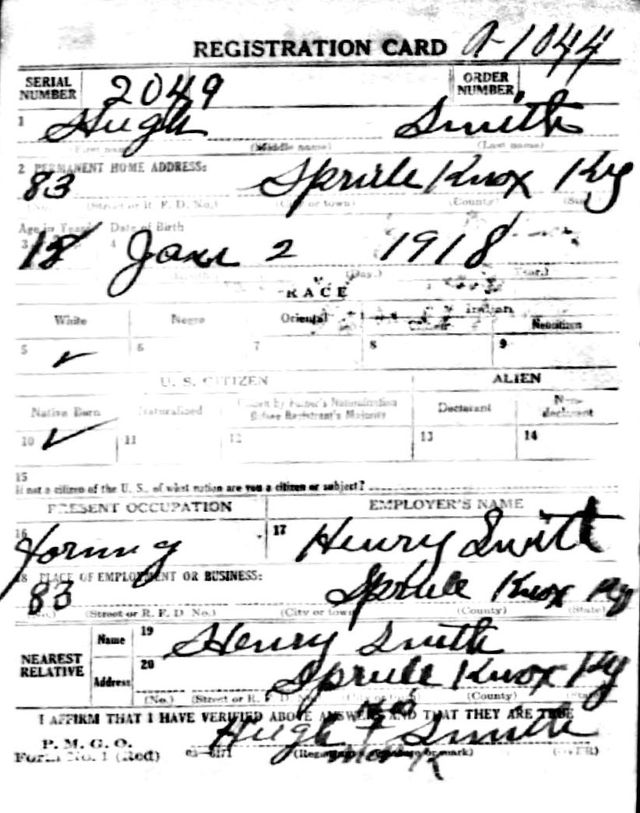 REGISTRATION CARD A-1044
SERIAL NUMBER 2049 ORDER NUMBER
1 Hugh Smith
(First name) (Middle name) (Last name)
2 PERMANENT HOME ADDRESS:
83 Sprule Knox Ky
(No.) (Street or R. F. D. No.) (City or town) (County) (State)
Age in Years Date of Birth
3 18 4 Jan 2 1918
(Day.) (Year.)
RACE
White Negro Oriental Indian
Citizen Noncitizen
5 ✓ 6 7 8 9
U. S. CITIZEN ALIEN
Native Born Naturalized Citizen by Father's Naturalization Before Registrant's Majority Declarant Non-declarant
10 ✓ 11 12 13 14
15
If not a citizen of the U. S., of what nation are you a citizen or subject?
PRESENT OCCUPATION EMPLOYER'S NAME
16 17 Henry Smith
18 PLACE OF EMPLOYMENT OR BUSINESS:
83 Sprule Knox Ky
(No.) (Street or R. F. D. No.) (City or town) (County) (State)
NEAREST RELATIVE Name 19 Henry Smith
Address 20 Sprule Knox Ky
(No.) (Street or R. F. D. No.) (City or town) (County) (State)
I AFFIRM THAT I HAVE VERIFIED ABOVE ANSWERS AND THAT THEY ARE TRUE
his
P. M. G. O. Hugh + Smith
Form No. 1 (Red) 03-6171 (Registrant's signature or mark) (OVER)
mark